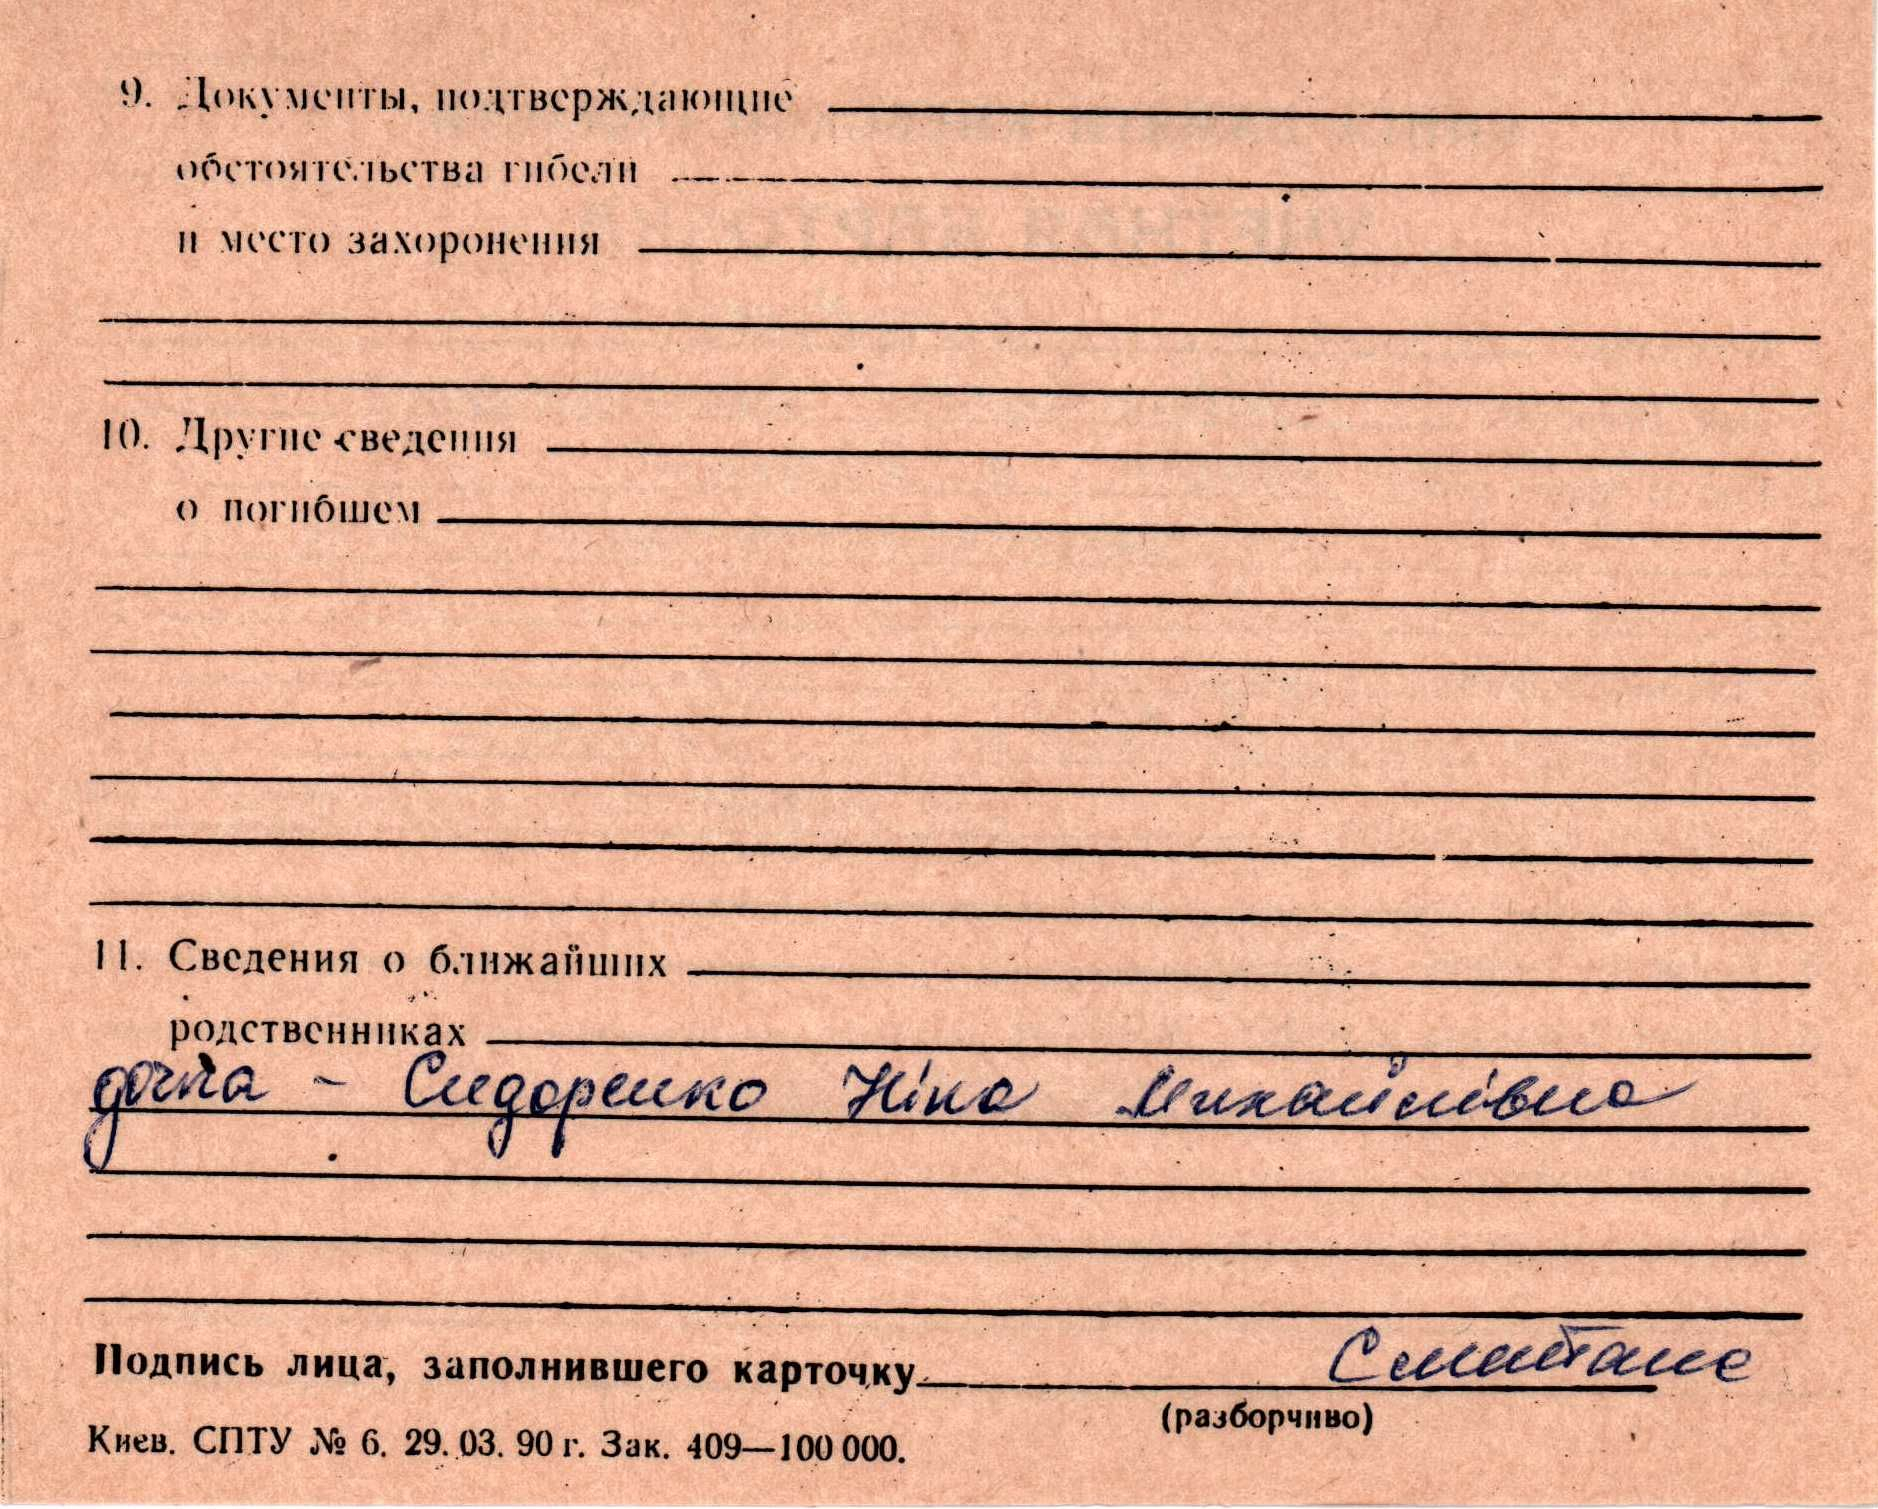 9. Документы, подтверждающие
обстоятельства гибели
и место захоронения
10. Другие сведения
о погибшем
11. Сведения о ближайших
родственниках
дочка - Сидоренко Ніна Михайлівна
Подпись лица, заполнившего карточку
(разборчиво)
Киев. СПТУ № 6. 29. 03. 90 г. Зак. 409—100 000.